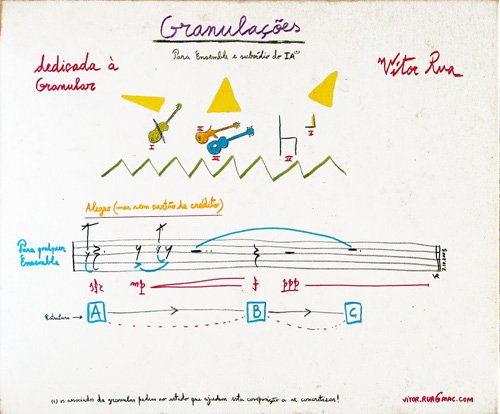 Granulações
Para Ensemble e subsídio do IA⁽¹⁾
dedicada à
Granular
Vítor Rua
I
II
III
IV
V
Alegro (mas sem cartão de crédito)
Para qualquer
Ensemble
sfz mp f ppp
Estrutura A B C
(1) os associados da granular pedem ao estado que ajudem esta composição a se concretizar!
VITOR.RUA@MAC.COM